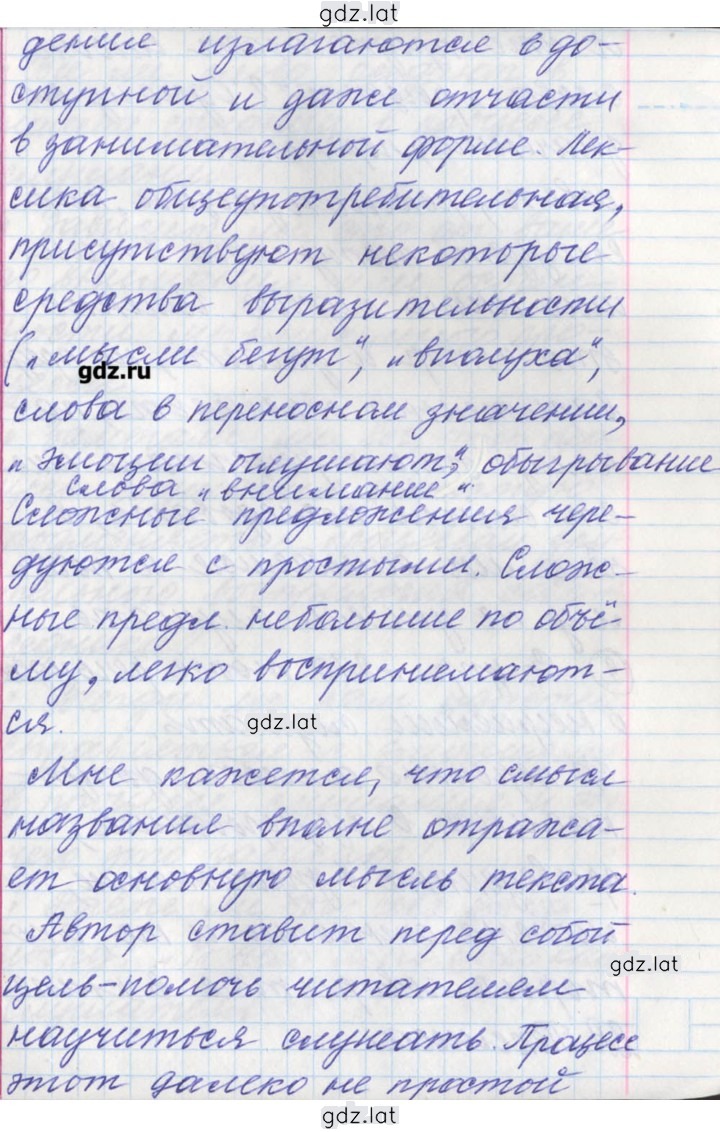 gdz.lat
дения излагаются в до-
ступной и даже отчасти
в занимательной форме. Лек-
сика общеупотребительная,
присутствуют некоторые
средства выразительности
(„мысли бегут“, „вполуха“,
gdz.ru
слова в переносном значении,
„эмоции оглушают“, обыгрывание
слова „внимание“
Сложные предложения чере-
дуются с простыми. Слож-
ные предл. небольшие по объё-
му, легко воспринимают-
ся.
gdz.lat
Мне кажется, что смысл
названия вполне отража-
ет основную мысль текста.
Автор ставит перед собой
gdz.lat
цель-помочь читателем
научиться слушать. Процесс
этот далеко не простой
gdz.lat